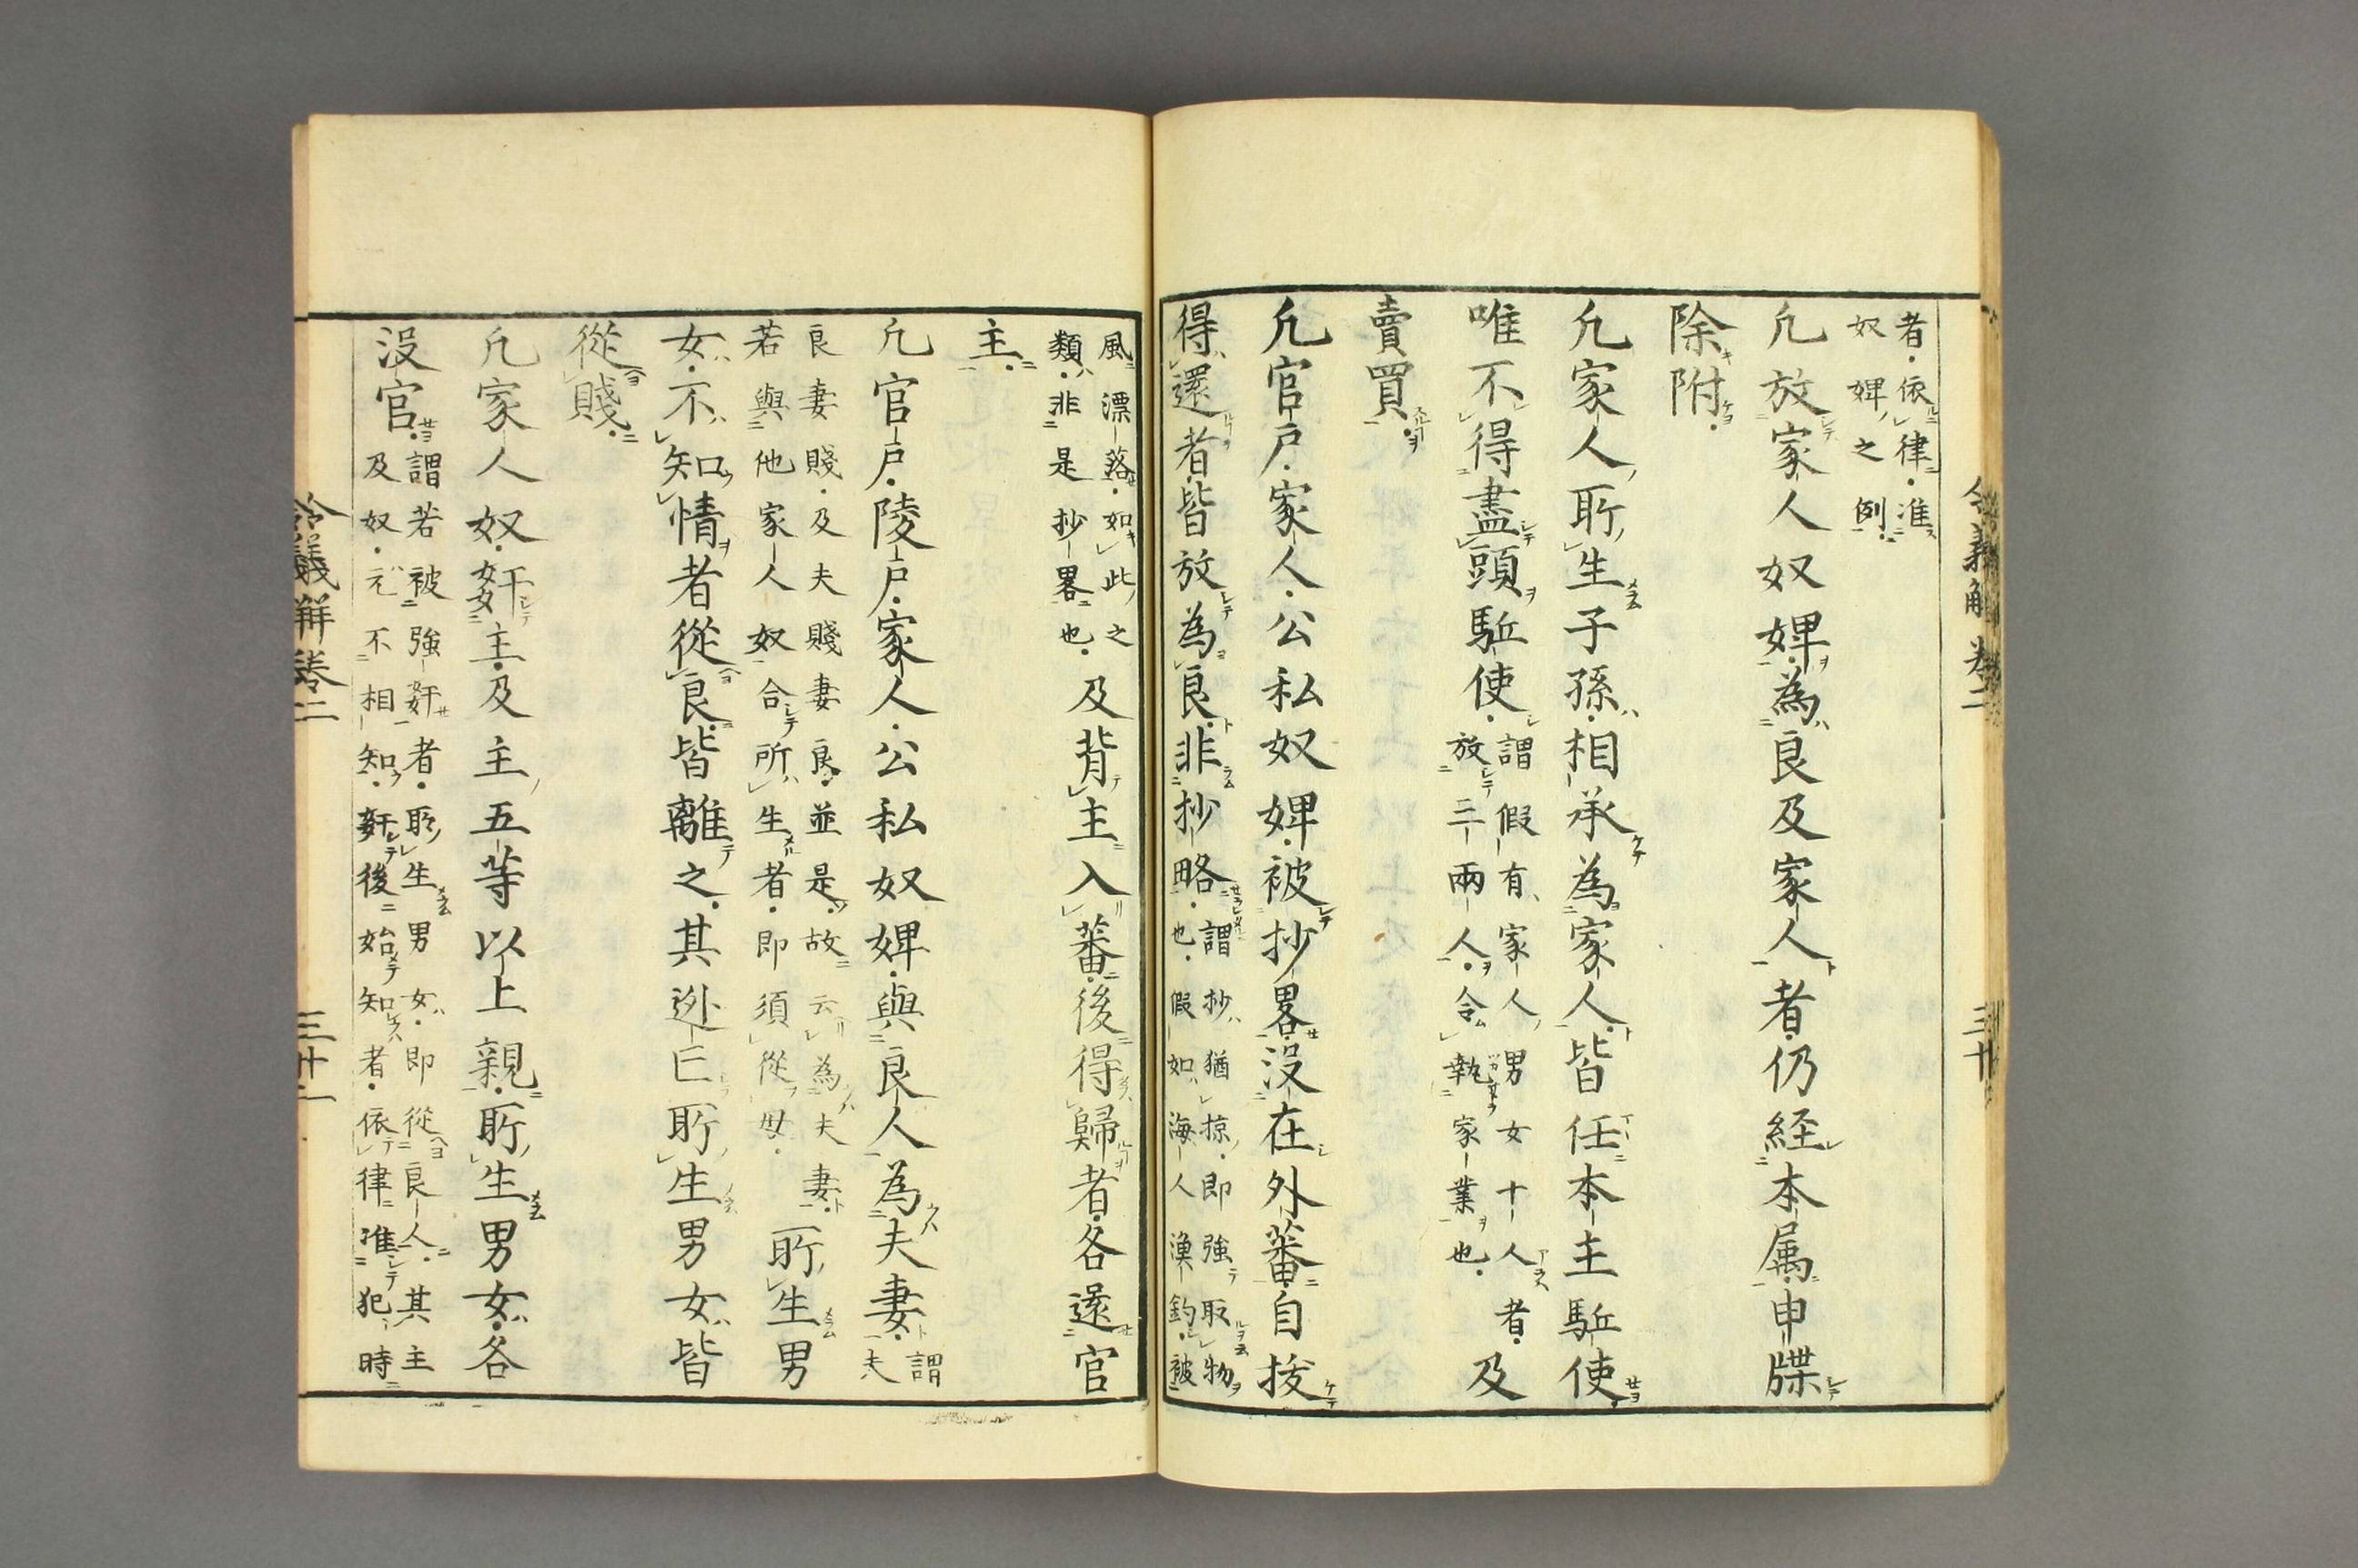 者依律准
奴婢之例
凡放家人奴婢為良及家人者仍経本属申牒
除附
凡家人所生子孫相承為家人皆任本主駈使
唯不得盡頭駈使謂假有家人男女十人者
放二兩人令執家業也及
賣買
凡官戸家人公私奴婢被抄畧没在外蕃自抜
得還者皆放為良非抄略謂抄猶掠即強取物
也假如海人漁釣被
令義解卷二
三十
風漂落如此之
類非是抄畧也及背主入蕃後得歸者各還官
主
凡官戸陵戸家人公私奴婢與良人為夫妻謂
夫
良妻賤及夫賤妻良並是故云為夫妻
若與他家人奴合所生者即須從母所生男
女不知情者從良皆離之其逃亡所生男女皆
從賤
凡家人奴姧主及主五等以上親所生男女各
没官謂若被強姧者所生男女即從良人其主
及奴元不相知姧後始知者依律准犯時
令義解卷二
三十一